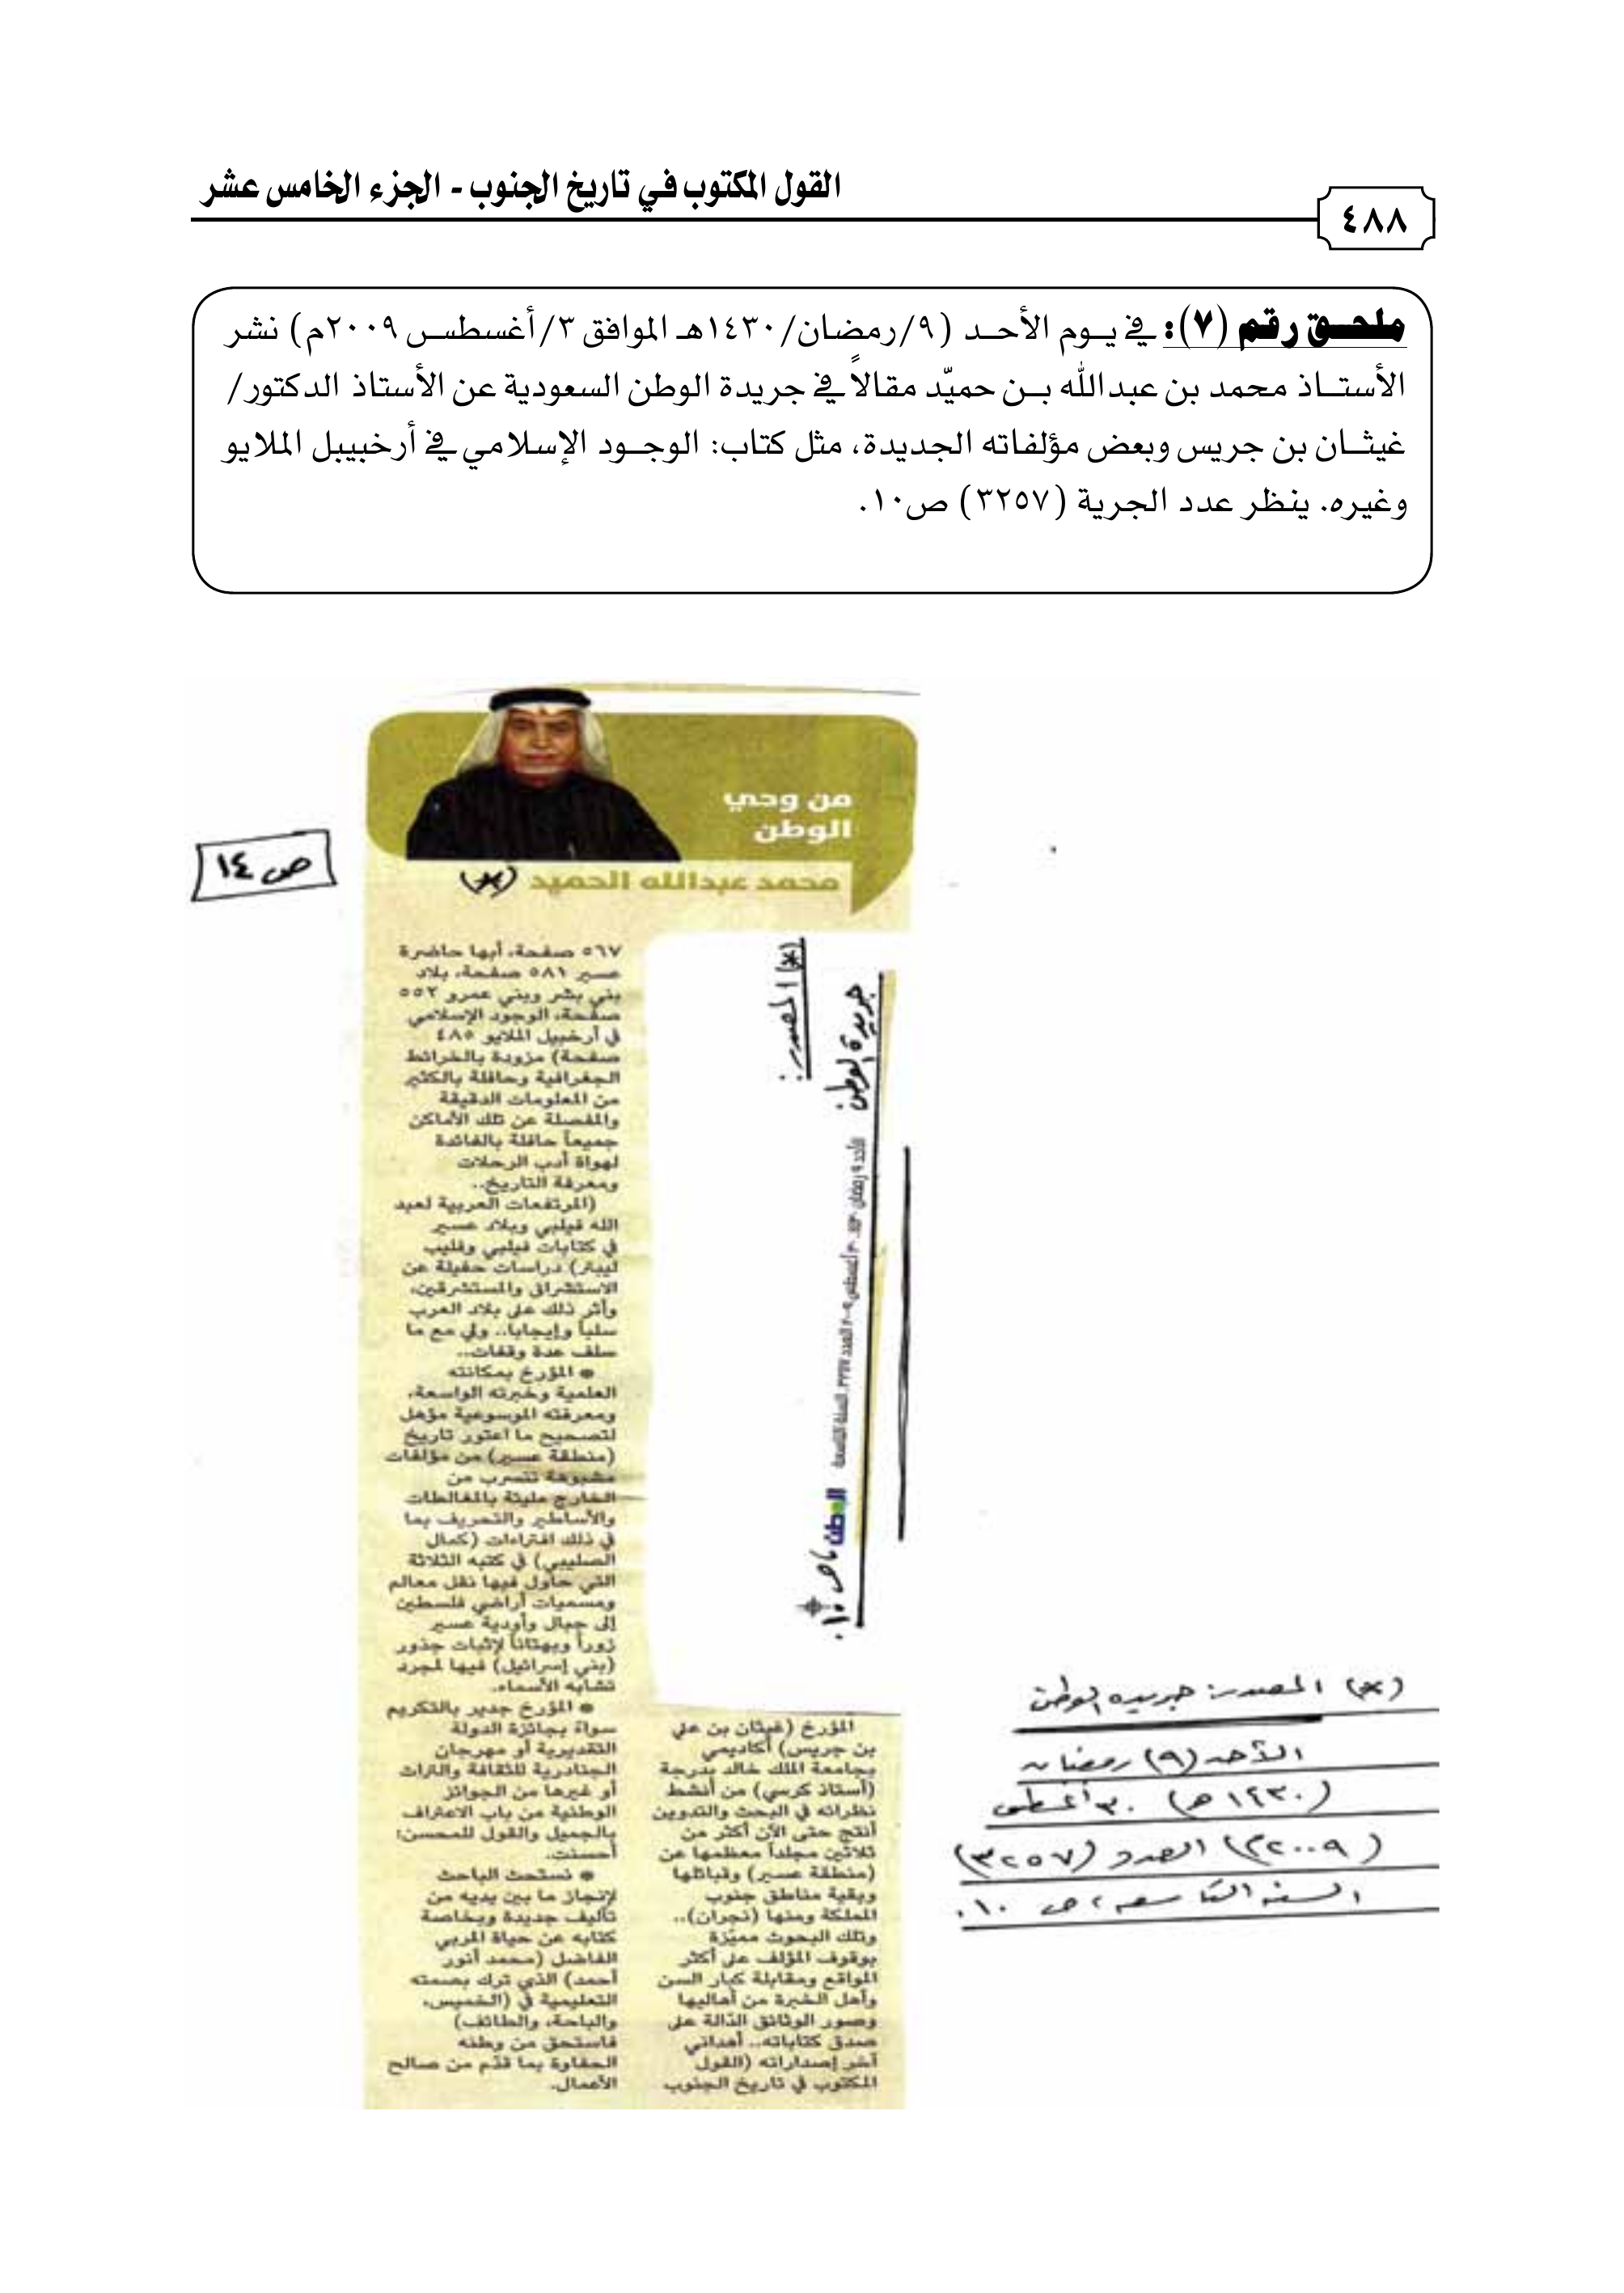 القول المكتوب في تاريخ الجنوب - الجزء الخامس عشر
٤٨٨
ملحق رقم (٧): في يوم الأحد (٩/رمضان/١٤٣٠هـ الموافق ٣/أغسطس ٢٠٠٩م) نشر
الأستاذ محمد بن عبدالله بن حميّد مقالاً في جريدة الوطن السعودية عن الأستاذ الدكتور/
غيثان بن جريس وبعض مؤلفاته الجديدة، مثل كتاب: الوجود الإسلامي في أرخبيبل الملايو
وغيره. ينظر عدد الجرية (٣٢٥٧) ص١٠.
من وحي
الوطن
محمد عبدالله الحميد (*)
ص ١٤
(*) المصدر:
جريدة الوطن
الأحد ٩ رمضان ١٤٣٠ ٣٠ أغسطس ٢٠٠٩ العدد ٣٢٥٧ السنة التاسعة
الوطن / ص ١٠.
المؤرخ (غيثان بن علي
بن جريس) أكاديمي
بجامعة الملك خالد بدرجة
(أستاذ كرسي) من أنشط
نظرائه في البحث والتدوين
أنتج حتى الآن أكثر من
ثلاثين مجلداً معظمها عن
(منطقة عسير) وقبائلها
وبقية مناطق جنوب
المملكة ومنها (نجران)..
وتلك البحوث مميّزة
بوقوف المؤلف على أكثر
المواقع ومقابلة كبار السن
وأهل الخبرة من أهاليها
وصور الوثائق الدّالة على
صدق كتاباته.. أهداني
آخر إصداراته (القول
المكتوب في تاريخ الجنوب
٥٦٧ صفحة، أبها حاضرة
عسير ٥٨١ صفحة، بلاد
بني بشر وبني عمرو ٥٥٢
صفحة، الوجود الإسلامي
في أرخبيل الملايو ٤٨٥
صفحة) مزودة بالخرائط
الجغرافية وحافلة بالكثير
من المعلومات الدقيقة
والمفصلة عن تلك الأماكن
جميعاً حافلة بالفائدة
لهواة أدب الرحلات
ومعرفة التاريخ..
(المرتفعات العربية لعبد
الله فيلبي وبلاد عسير
في كتابات فيلبي وفليب
ليبنز) دراسات حفيلة عن
الاستشراق والمستشرقين،
وأثر ذلك على بلاد العرب
سلباً وإيجابا.. ولي مع ما
سلف عدة وقفات..
● المؤرخ بمكانته
العلمية وخبرته الواسعة،
ومعرفته الموسوعية مؤهل
لتصحيح ما اعتور تاريخ
(منطقة عسير) من مؤلفات
مشبوهة تتسرب من
الخارج مليئة بالمغالطات
والأساطير والتحريف بما
في ذلك افتراءات (كمال
الصليبي) في كتبه الثلاثة
التي حاول فيها نقل معالم
ومسميات أراضي فلسطين
إلى جبال وأودية عسير
زوراً وبهتاناً لإثبات جذور
(بني إسرائيل) فيها لمجرد
تشابه الأسماء.
● المؤرخ جدير بالتكريم
سواءً بجائزة الدولة
التقديرية أو مهرجان
الجنادرية للثقافة والتراث
أو غيرها من الجوائز
الوطنية من باب الاعتراف
بالجميل والقول للمحسن:
أحسنت.
● نستحث الباحث
لإنجاز ما بين يديه من
تآليف جديدة وبخاصة
كتابه عن حياة المربي
الفاضل (محمد أنور
أحمد) الذي ترك بصمته
التعليمية في (الخميس،
والباحة، والطائف)
فاستحق من وطنه
الحفاوة بما قدّم من صالح
الأعمال.
(*) المصدر: جريدة الوطن
الأحد (٩) رمضان
(١٤٣٠هـ) ٣٠ أغسطس
(٢٠٠٩م) العدد (٣٢٥٧)
السنة التاسعة، ص ١٠.